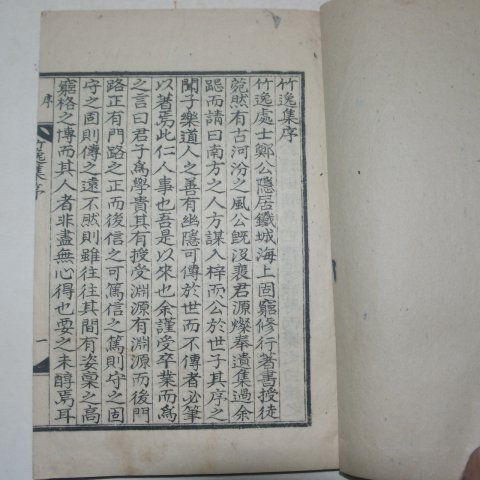 竹逸集序
竹逸處士鄭公隱居鐵城海上固窮修行著書授徒
菀然有古河汾之風公旣沒喪君源燦奉遺集過余
跽而請曰南方之人方謀入梓而公於世子其序之
聞子樂道人之善有幽隱可傳於世而不傳者必筆
以著焉此仁人事也吾是以來也余謹受卒業而爲
之言曰君子爲學貴其有授受淵源有淵源而後門
路正有門路之正而後信之可篤信之篤則守之固
守之固則傳之遠不然則雖往往其間有姿稟之高
窮格之博而其人者非盡無心得也要之未醇焉耳
序
竹逸集序
一